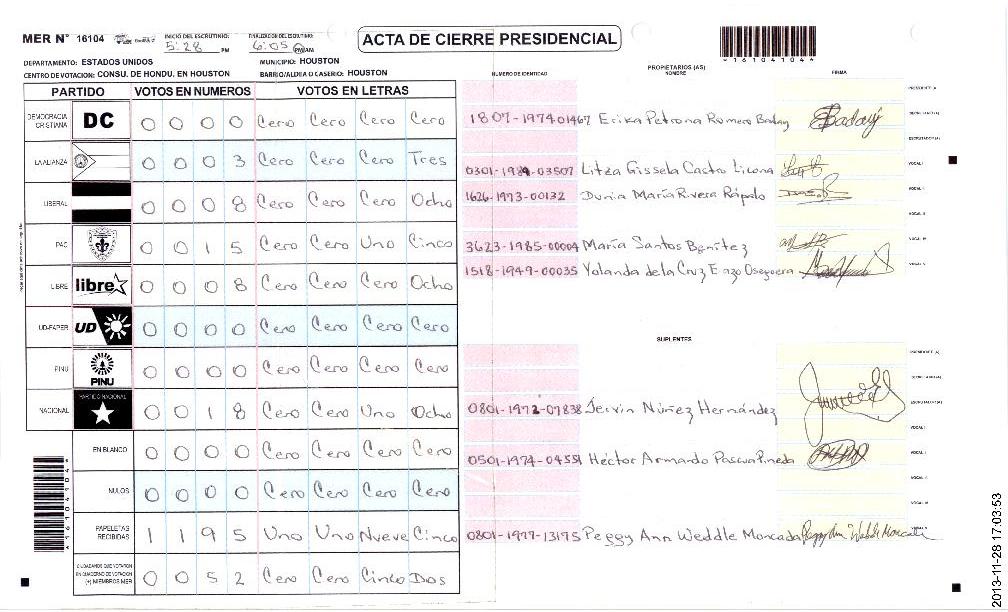 MER N° 16104
INICIO DEL ESCRUTINIO: 5:28 PM
FINALIZACION DEL ESCRUTINIO: 6:05 PM/AM
ACTA DE CIERRE PRESIDENCIAL
*161041044*
DEPARTAMENTO: ESTADOS UNIDOS
MUNICIPIO: HOUSTON
CENTRO DE VOTACION: CONSU. DE HONDU. EN HOUSTON
BARRIO/ALDEA O CASERIO: HOUSTON
PARTIDO VOTOS EN NUMEROS VOTOS EN LETRAS
DEMOCRACIA CRISTIANA DC 0 0 0 0 Cero Cero Cero Cero
LA ALIANZA 0 0 0 3 Cero Cero Cero Tres
LIBERAL 0 0 0 8 Cero Cero Cero Ocho
PAC 0 0 1 5 Cero Cero Uno Cinco
LIBRE libre 0 0 0 8 Cero Cero Cero Ocho
UD-FAPER UD 0 0 0 0 Cero Cero Cero Cero
PINU PINU 0 0 0 0 Cero Cero Cero Cero
NACIONAL PARTIDO NACIONAL 0 0 1 8 Cero Cero Uno Ocho
EN BLANCO 0 0 0 0 Cero Cero Cero Cero
NULOS 0 0 0 0 Cero Cero Cero Cero
PAPELETAS RECIBIDAS 1 1 9 5 Uno Uno Nueve Cinco
CIUDADANOS QUE VOTARON EN CUADERNO DE VOTACION (+) MIEMBROS MER 0 0 5 2 Cero Cero Cinco Dos
*161041044*
PROPIETARIOS (AS)
NUMERO DE IDENTIDAD NOMBRE FIRMA
PRESIDENTE (A)
1807-1974-01467 Erika Petrona Romero Baday SECRETARIO (A)
ESCRUTADOR (A)
0301-1984-03507 Litza Gissela Castro Licona VOCAL I
1626-1973-00132 Dunia María Rivera Rápalo VOCAL II
VOCAL III
3623-1985-00004 María Santos Benítez VOCAL IV
1518-1949-00035 Yolanda de la Cruz Erazo Oseguera VOCAL V
SUPLENTES
PRESIDENTE (A)
SECRETARIO (A)
0801-1972-07838 Jervin Núñez Hernández ESCRUTADOR (A)
VOCAL I
0501-1974-04551 Héctor Armando Pascua Pineda
0801-1977-13175 Peggy Ann Weddle Moncada Peggy Ann Weddle Moncada
2013-11-28 17:03:53